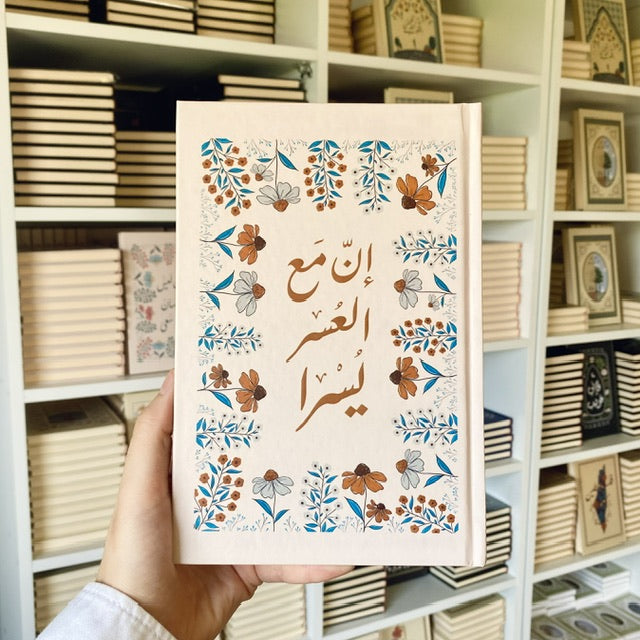 إنّ مَع
العُسر
يُسْرا